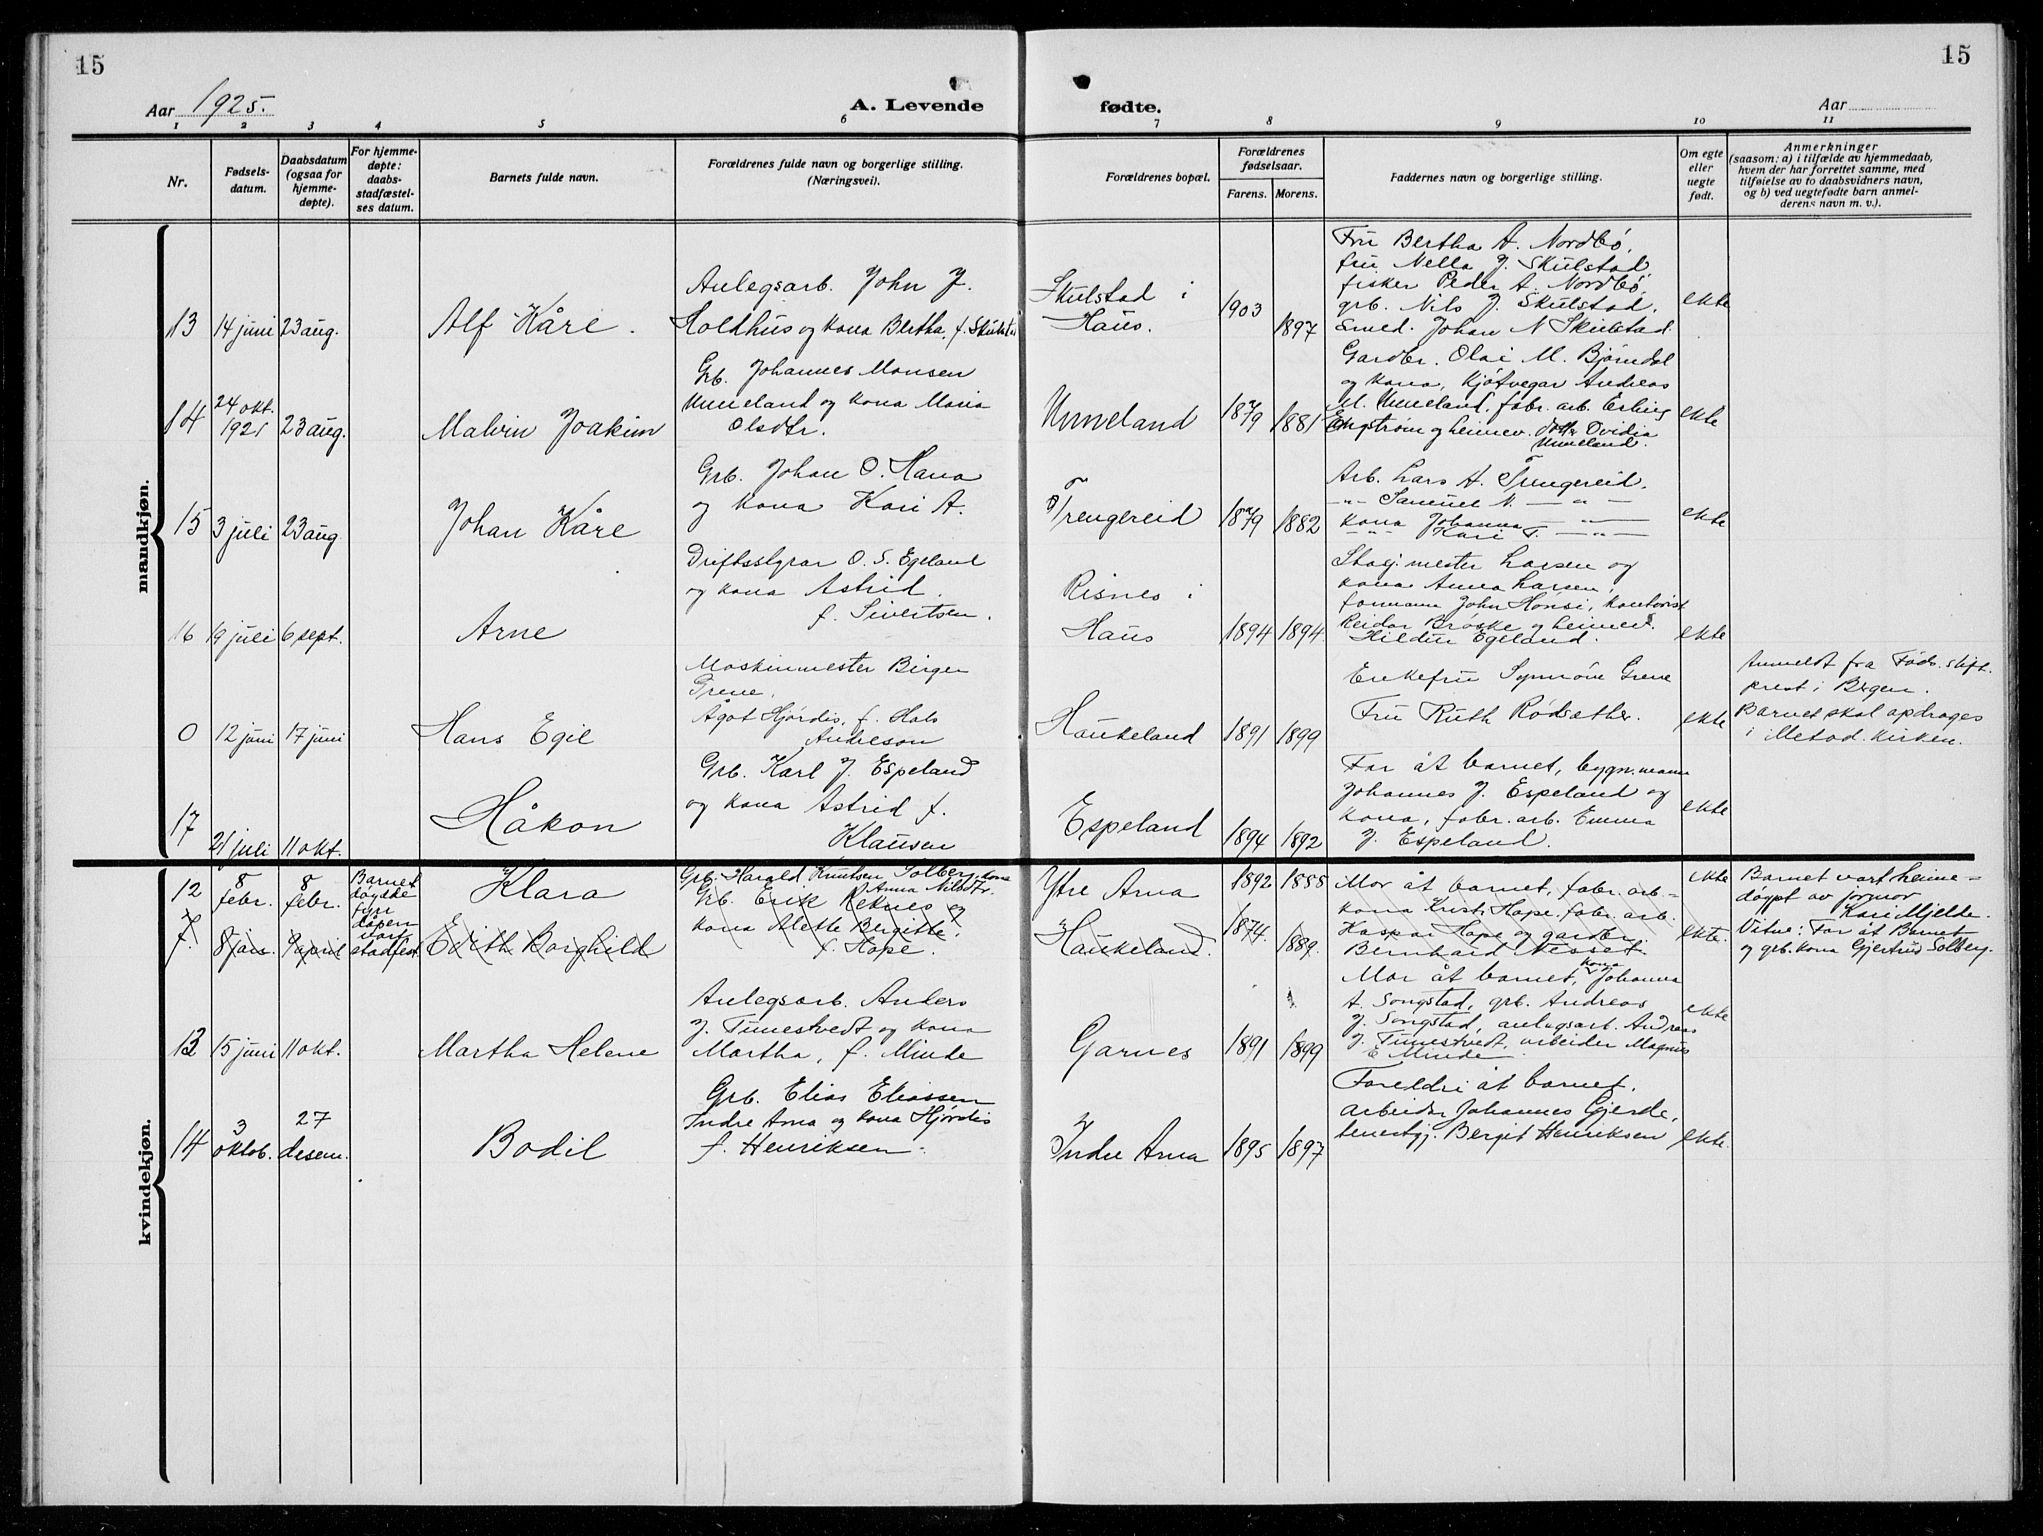 15
15
Aar 1925.
A. Levende
fødte.
Aar
1 2 3 4 5 6 7 8 9 10 11
Nr.
Fødsels-
datum.
Daabsdatum
(ogsaa for
hjemme-
døpte).
For hjemme-
døpte:
daabs-
stadfæstel-
ses datum.
Barnets fulde navn.
Forældrenes fulde navn og borgerlige stilling.
(Næringsvei).
Forældrenes bopæl.
Forældrenes
fødselsaar.
Farens. Morens.
Faddernes navn og borgerlige stilling.
Om egte
eller
uegte
født.
Anmerkninger
(saasom: a) i tilfælde av hjemmedaab,
hvem der har forrettet samme, med
tilføielse av to daabsvidners navn,
og b) ved uegtefødte barn anmel-
derens navn m. v.).
mandkjøn.
13 14 juni 23 aug.
Alf Kåre.
Anlegsarb. John J.
Holdhus og kona Bertha, f. Skulstad
Skulstad i
Haus.
1903
1897
Fru Bertha A. Nordbø,
fru Nella J. Skulstad,
fisker Peder A. Nordbø,
grb. Nils J. Skulstad,
Smed. Johan N Skulstad.
ekte
14 24 okt.
1921 23 aug.
Malvin Joakim
Grb. Johannes Monsen
Unneland og kona Maria
Olsdtr.
Unneland
1879
1881
Gardbr. Olai M. Bjørndal
og kona, kjøtvegar Andreas
M. Unneland, fabr. arb. Erling
Engstrøm og heimev. dotter Ovidia
Unneland.
ekte
15 3 juli 23 aug
Johan Kåre
Grb. Johan O. Hana
og kona Kari A.
Trengereid
1879 1882
Arb. Lars A. Trengereid.
-"- Samuel N. -"-
kona Johanna -"-
-"- Kari T. -"-
ekte
16 19 juli 6 sept.
Arne
Driftsstyrar O. S. Egeland
og kona Astrid
f. Sivertsen.
Risnes i
Haus
1894 1894
Stasj. mester Larsen og
kona Anna Larsen,
formann John Honsi, kontorist
Reidar Brøske og heimev.
Hildur Egeland.
ekte
0 12 juni 17 juni
Hans Egil
Maskinmester Birger
Grene,
Ågot Hjørdis, f. Hals
Andreson
Haukeland
1891 1899
Enkefru Synnøve Grene
Fru Ruth Rødsæther.
ekte
Anmeldt fra Føds. stift.
prest i Bergen.
Barnet skal opdrages
i Metod. kirken.
17
21 juli 11 okt.
Håkon
Grb. Karl J. Espeland
og kona Astrid f.
Klausen
Espeland
1894 1892
Far åt barnet, bygn. mann
Johannes J. Espeland og
kona, fabr. arb. Emma
J. Espeland.
ekte
kvindekjøn.
12 8
febr. 8
febr.
Barnet
døydde
fyrr
dåpen
vart
stadfest.
Klara
Grb. Harald Knutsen Solberg, kona
Anna Nilsdtr.
Ytre Arna
1892 1888
Mor åt barnet, fabr. arb.
ekte
Barnet vart heime-
døypt av jormor
Kari Mjelde.
Vitne: Far åt Barnet
og grb. kona Gjertrud Solberg.
7. 8 jan. 9 april
Edith Borghild
Grb. Erik Reknes og
kona Alette Bergitte,
f. Hope.
Haukeland.
1874.
1889.
kona Krist. Hope, fabr. arb.
Kaspar Hope og gardbr.
Bernhard Nesset.
ekte.
13 15 juni 11 okt.
Martha Helene
Anlegsarb. Anders
J. Tunestvedt og kona
Martha, f. Minde
Garnes
1891 1899
Mor åt barnet, kona Johanna
A. Songstad, grb. Andreas
J. Songstad, anlegsarb. Andreas
J. Tunestvedt, arbeider Magnus
E Minde.
ekte
14 3
oktob. 27
desem.
Bodil
Grb. Elias Eliassen
Indre Arna og kona Hjørdis
f. Henriksen.
Indre Arna
1895 1897
Foreldri åt barnet,
arbeidar Johannes Gjerde,
tenestgj. Bergit Henriksen
ekte.